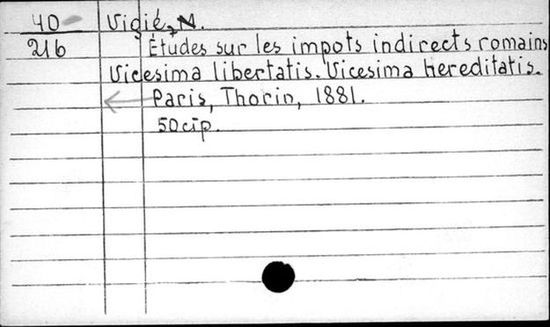 40 Vigié, N.
216 Études sur les impots indirects romains
Vicesima libertatis. Vicesima hereditatis.
Paris, Thorin, 1881.
50 cip.